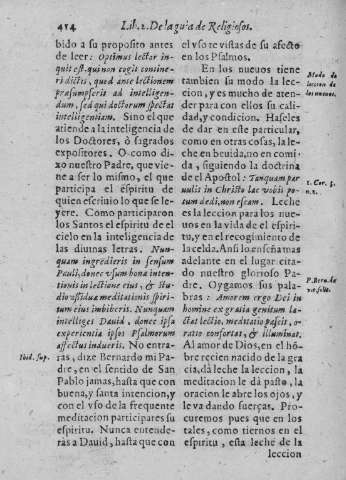 414 Lib. 2. De la guia de Religiosos.
bido a su proposito antes
de leer: Optimus lector in-
quit est, qui non cogit contine-
ri dictis, quod ante lectionem
præsumpserit ad intelligen-
dum, sed qui doctorum spectat
intelligentiam. Sino el que
atiende a la inteligencia de
los Doctores, ò sagrados
expositores. O como di-
xo nuestro Padre, que vie-
ne a ser lo mismo, el que
participa el espiritu de
quien escriuio lo que se le-
yere. Como participaron
los Santos el espiritu de el
cielo en la inteligencia de
las diuinas letras. Nun-
quam ingredieris in sensum
Pauli, donec vsum bonæ inten-
tionis in lectione eius, & stu-
dio assiduæ meditationis spiri-
tum eius imbiberis. Nunquam
intelliges Dauid, donec ipsa
experientia ipsos Psalmorum
affectus indueris. No entra-
Ibid. sup.
ras, dize Bernardo mi Pa-
dre, en el sentido de San
Pablo jamas, hasta que con
buena, y santa intencion, y
con el vso de la frequente
meditacion participares su
espiritu. Nunca entende-
ràs a Dauid, hasta que con
el vso te vistas de su afecto
en los Psalmos.
En los nueuos tiene
tambien su modo la lec-
Modo de
leccion de
los nueuos.
cion, y es mucho de aten-
der para con ellos su cali-
dad, y condicion. Haseles
de dar en este particular,
como en otras cosas, la le-
che en beuida, no en comi-
da, siguiendo la doctrina
de el Apostol: Tanquam par-
uulis in Christo lac vobis po-
1. Cor. 3.
n. 2.
tum dedi, non escam. Leche
es la leccion para los nue-
uos en la vida de el espiri-
tu, y en el recogimiento de
la celda. Ansi lo enseña mas
adelante en el lugar cita-
do nuestro glorioso Pa-
dre. Oygamos sus pala-
P. Bern. de
vit. solit.
bras: Amorem ergo Dei in
homine ex gratia genitum la-
ctat lectio, meditatio pascit, o-
ratio confortat, & illuminat.
Al amor de Dios, en el hõ-
bre recien nacido de la gra
cia, dà leche la leccion, la
meditacion le dà pasto, la
oracion le abre los ojos, y
le va dando fuerças. Pro-
curemos pues que en los
tales, como tiernos en el
espiritu, esta leche de la
leccion